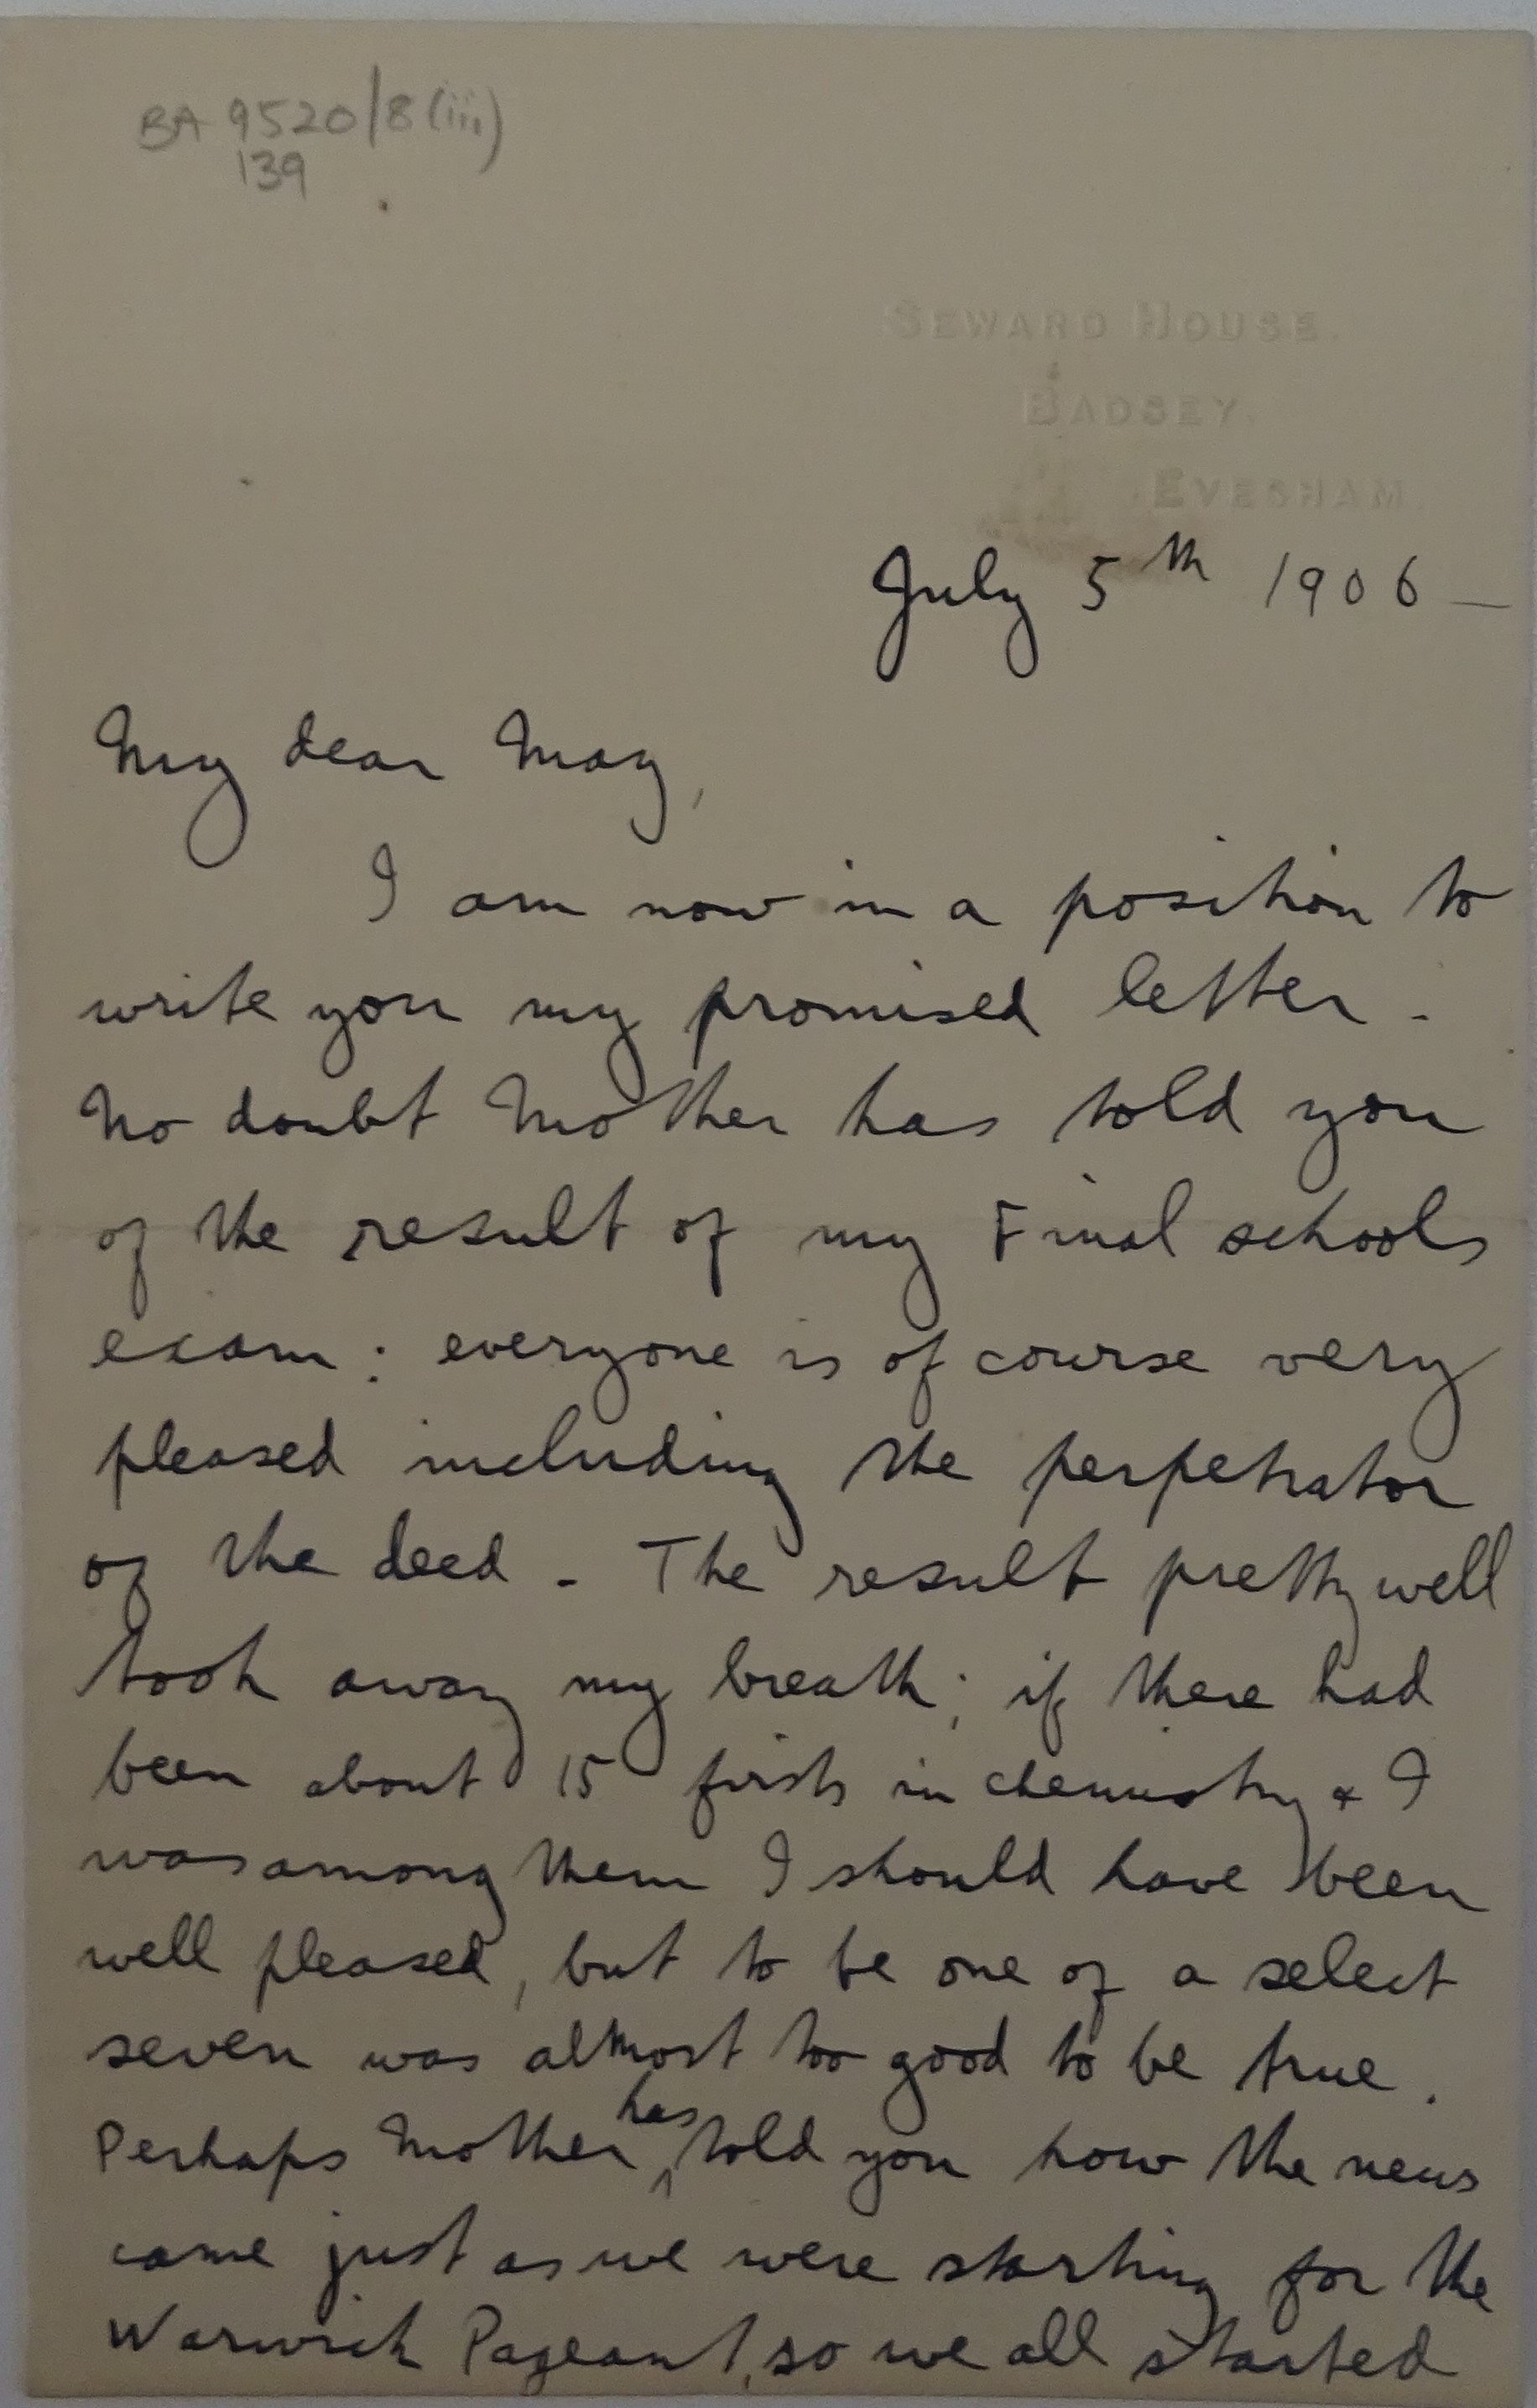 BA 9520/8(iii)
139
SEWARD HOUSE.
BADSEY.
EVESHAM.
July 5th 1906 –
My dear May,
I am now in a position to
write you my promised letter -
No doubt Mother has told you
of the result of my Final schools
exam : everyone is of course very
pleased including the perpetrator
of the deed - The result pretty well
took away my breath ; if there had
been about 15 firsts in chemistry & I
was among them I should have been
well pleased, but to be one of a select
seven was almost too good to be true .
Perhaps Mother has told you how the news
came just as we were starting for the
Warwick Pageant, so we all started